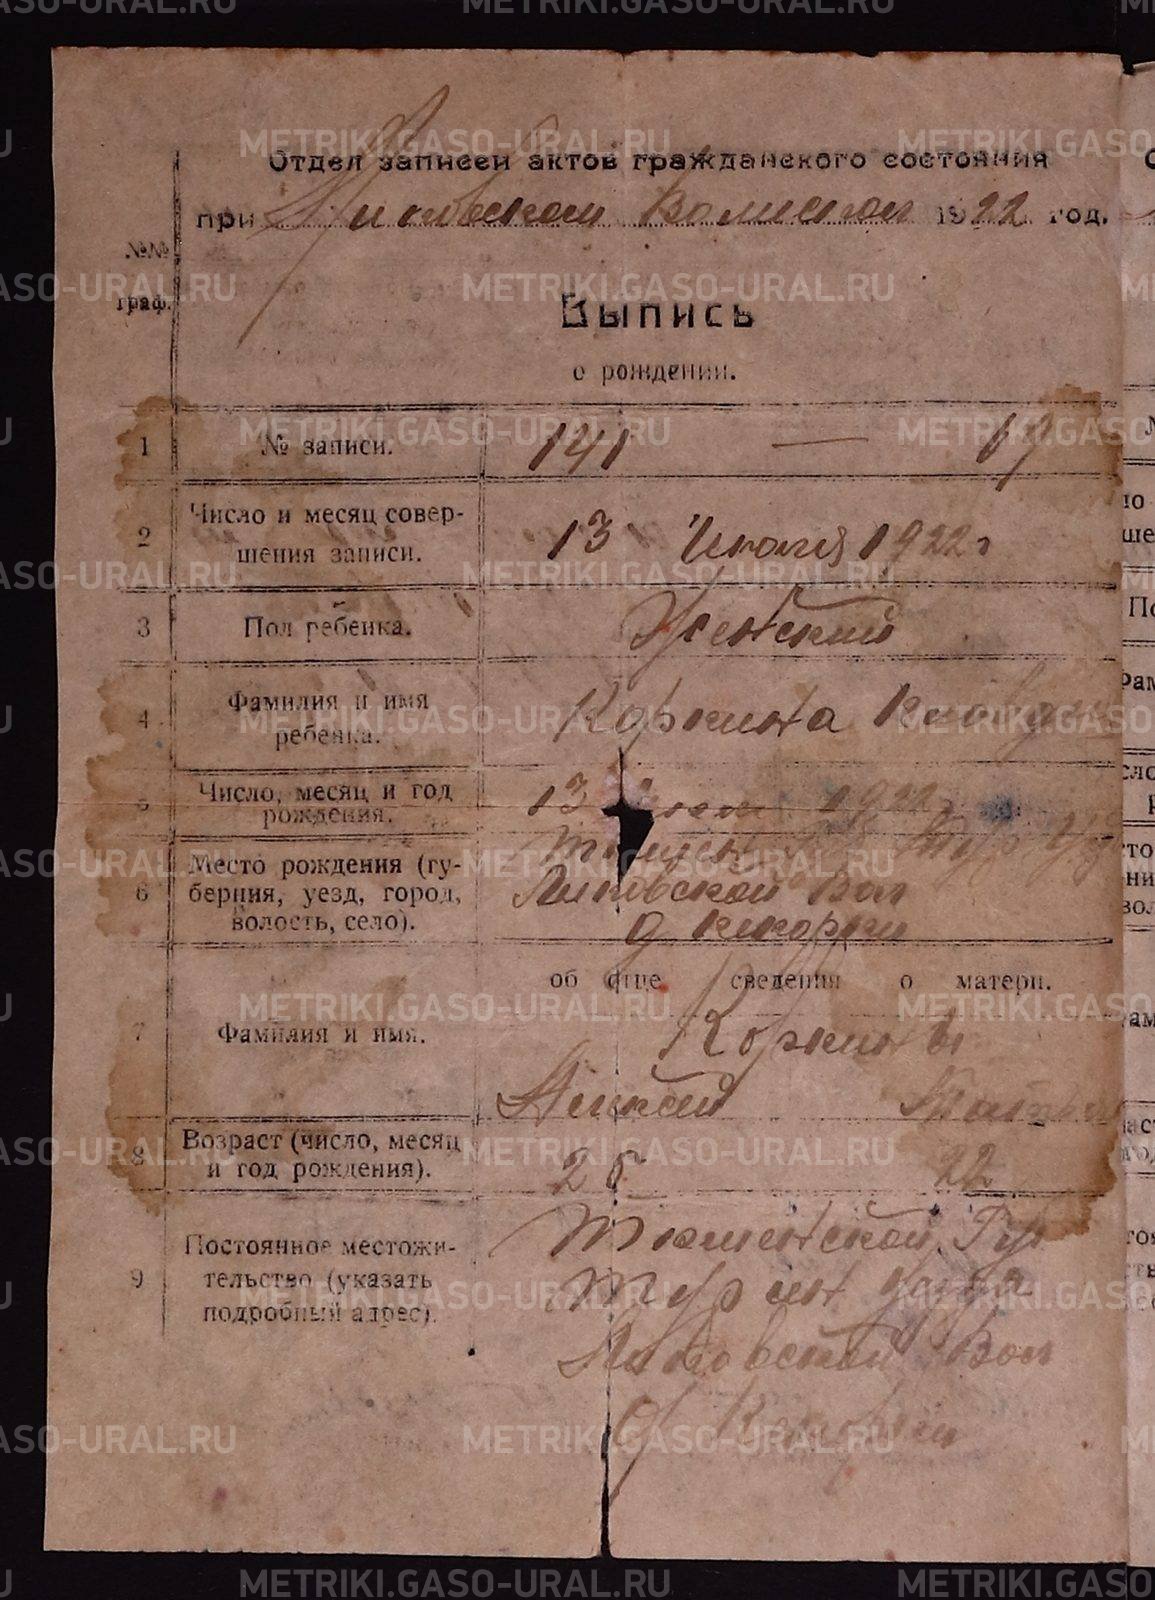 Отдел записей актов гражданского состояния
при Липовском Волиспол 1922 год.
№№
граф.
Выпись
о рождении.
1 № записи. 141 — 19
2 Число и месяц совер-
шения записи. 13 Июля 1922 г
3 Пол ребенка. Женский
4 Фамилия и имя
ребенка. Коркина Клавди
5 Число, месяц и год
рождения. 13 1922 г
6 Место рождения (гу-
берния, уезд, город,
волость, село). Липовской Вол
об отце сведения о матери.
7 Фамилия и имя. Коркины
Алексей
8 Возраст (число, месяц
и год рождения). 26 22
9 Постоянное местожи-
тельство (указать
подробный адрес).
Тюменской Губ
Турин уезда
Липовской Вол
METRIKI.GASO-URAL.RU